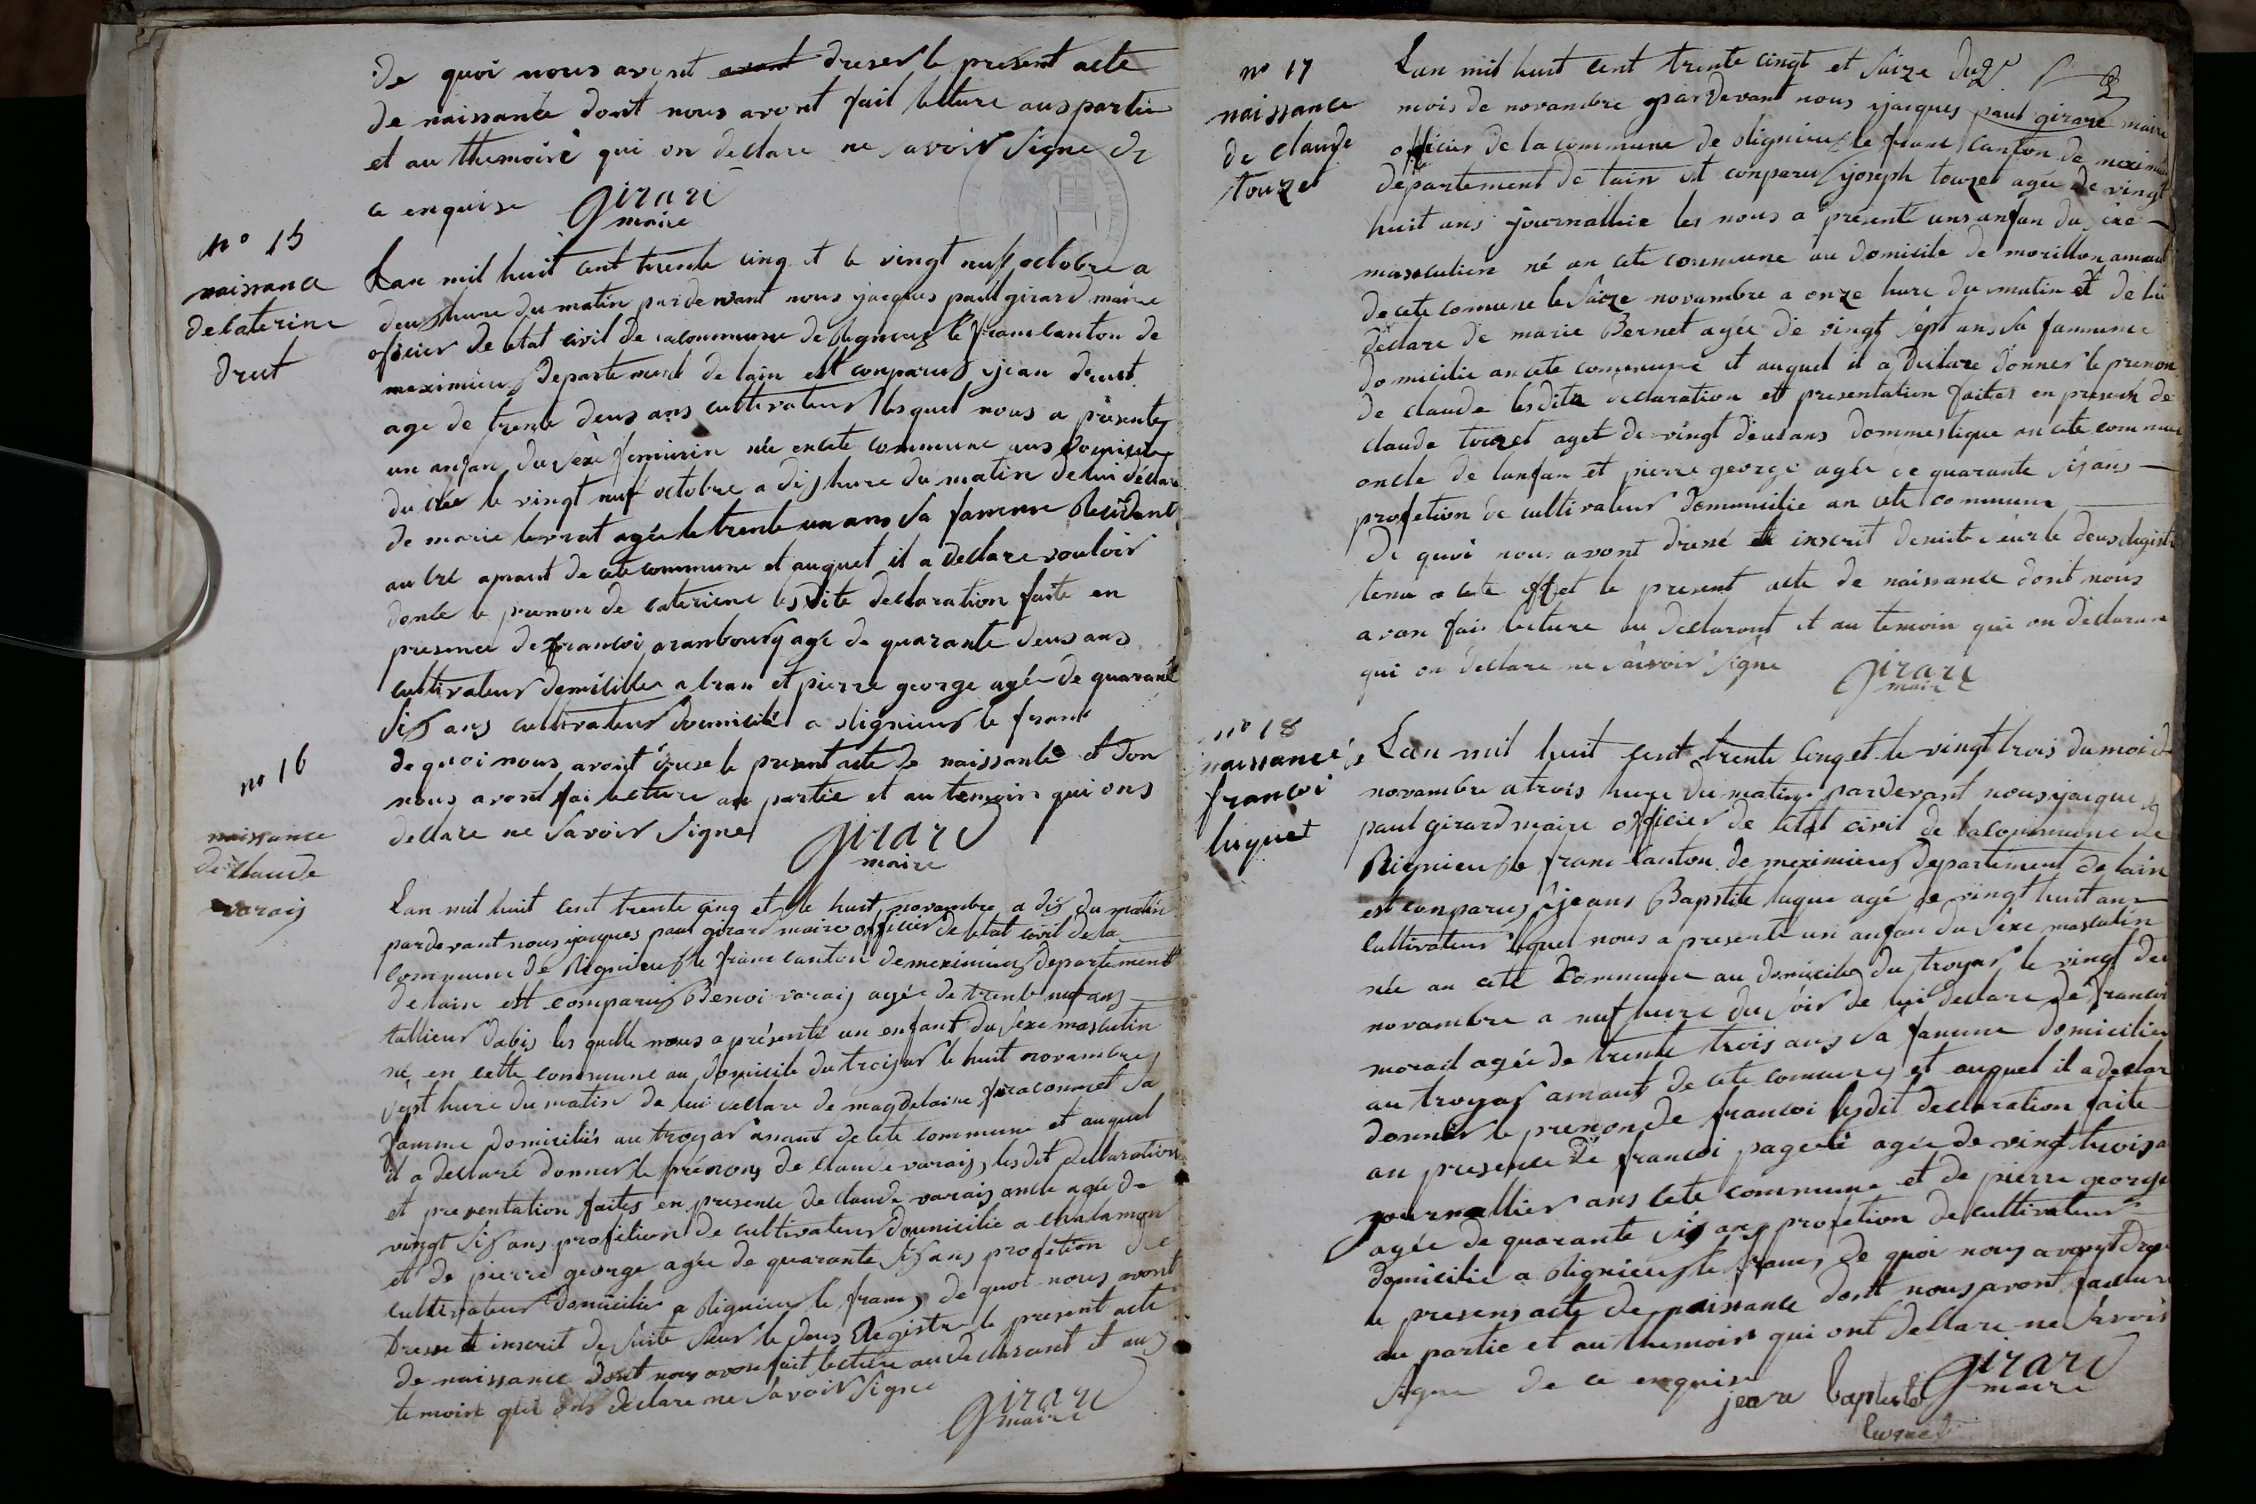 de quoi nous avont avont dreser le présent acte
de naissance dont nous avont fait lecture aus partie
et au themoire qui on declare ne savoir signe de
ce enquise Girard
maire
n° 15
naissance
de caterine
drut
Lan mil huit cent trente cinq et le vingt nuf octobre a
deus hure du matin pardevant nous jacques paul girard maire
oficier de letat civil de la commune de Rignieux le franc canton de
meximieux departement de lain est conparus jean drut
age de trente deus ans cultivateur lesquel nous a présente
un anfan du sexe feminin née en cete commune aus domicile
du le vingt nuf octobre a dis hure du matin de lui déclare
de marie agée de trente un ans sa famme Residant
au amant de cete commune et auquel il a declare vouloir
donee le prenon de caterine lesdite declaration faite en
presence de francoi rambourg age de quarante deus ans
cultivateur demicilié a bran et pierre george agée de quarante
sis ans cultivateur domicilié a Rignieux le franc
de quoi nous avont drese le present acte de naissance et don
nous avont fai lecture au partie et au temoin qui ons
declare ne savoir signe Girard
maire
n° 16
naissance
de claude
varais
Lan mil huit cent trente cinq et le huit novambre a dis du matin
pardevant nous jacques paul girard maire officier de letat civil de la
commune de Rignieux le franc canton de meximieux departement
de lain est comparus Benoi varais agée de trente nuf ans
tallieur dabis les quelle nous a présenté un enfant du sexe masculin
né en cette commune au domicile du troyas le huit novambre
sept hure du matin de lui déclare de magdelaine sa
famme domiciliés au troyas amant de cete commune et auquel
il a declaré donner le prénons de claude varais, lesdit declaration
et presentation faites en presence de claude varais oncle agée de
vingt sis ans profetion de cultivateur domicilie a chalamon
et de pierre george agée de quarante sis ans profetion de
cultivateur domicilie a Rignieux le franc, de quoi nous avont
dresse et inscrit de suite seur le deus Registre le present acte
de naissance dont nous avons fait lecture au declarant et aus
temoin qui ons declare ne savoir signe Girard
maire
n° 17
naissance
de claude
touzet
Lan mil huit cent trente cinqt et saize du
mois de novambre pardevant nous jacques paul girard maire
officier de la commune de Rignieux le franc canton de meximieu
departement de lain est conparus joseph touzet agée de vingt
huit ans journallie les nous a présente uns anfan du sexe
masculien né an cete commune au domicile de morillon amant
de cete comune le saize novambre a onze hure du matin et de lui
déclare de marie Bernet agée de vingt sept ans sa famme
domicilie an cete commune et auquel il a declare donner le prenon
de claude lesdite declaration et presentation faites en presence de
claude touzet aget de vingt deus ans dommestique an cete commune
oncle de lanfan et pierre george agée de quarante sis ans
profetion de cultivateur dommicilie an cete commune
de quoi nous avont dresé et inscrit de suite seur le deus Registre
tenu a cete effet le present acte de naissance dont nous
avon fai lecture au declarant et au temoin qui on declarare
qui on declare ne savoir signe Girard
maire
n° 18
naissance de
francoi
luquet
Lan mil huit cent trente cinq et le vingt trois du moi de
novambre a trois hure du matin pardevant nous jacque
paul girard maire officier de letat civil de la commune de
Rignieux le franc canton de meximieux departement de lain
est conparus jeans Baptiste luque agé de vingt huit ans
cultivateur lequel nous a presente un anfan du sexe masculin
née an cete commune au domicile du troyas le vingt deu
novambre a nuf hure du soir de lui declare de francoi
morail agée de trente trois ans sa famme domicilie
au troyas amant de cete commune et auquel il a declar
donner le prenon de francoi lesdit declaration faite
an presence de francoi agée de vingt trois a
journallier ans cete commune et de pierre george
agée de quarante sis ans profetion de cultivateur
domicilie a Rignieux le franc, de quoi nous avont drese
le presens acte de naissance dont nous avont fai lecture
au partie et au themoin qui ont declare ne savoir
signe de ce enquise Girard
maire
jean baptiste
luquet